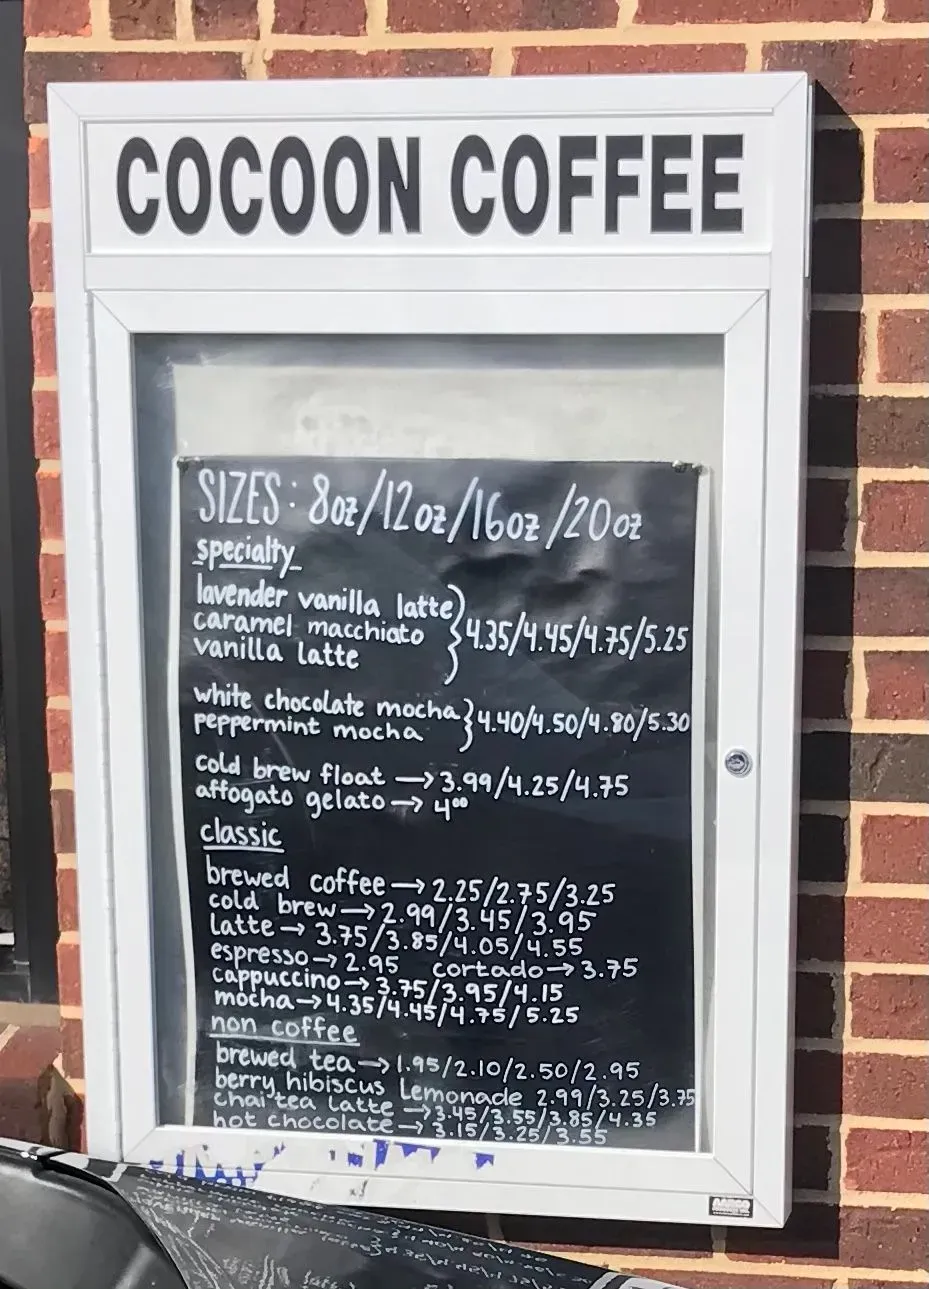 COCOON COFFEE
SIZES: 8oz/12oz/16oz/20oz
specialty
lavender vanilla latte
caramel macchiato } 4.35/4.45/4.75/5.25
vanilla latte
white chocolate mocha } 4.40/4.50/4.80/5.30
peppermint mocha
cold brew float → 3.99/4.25/4.75
affogato gelato → 4⁰⁰
classic
brewed coffee → 2.25/2.75/3.25
cold brew → 2.99/3.45/3.95
latte → 3.75/3.85/4.05/4.55
espresso → 2.95 cortado → 3.75
cappuccino → 3.75/3.95/4.15
mocha → 4.35/4.45/4.75/5.25
non coffee
brewed tea → 1.95/2.10/2.50/2.95
berry hibiscus Lemonade 2.99/3.25/3.75
chai tea latte → 3.45/3.55/3.85/4.35
hot chocolate → 3.15/3.25/3.55